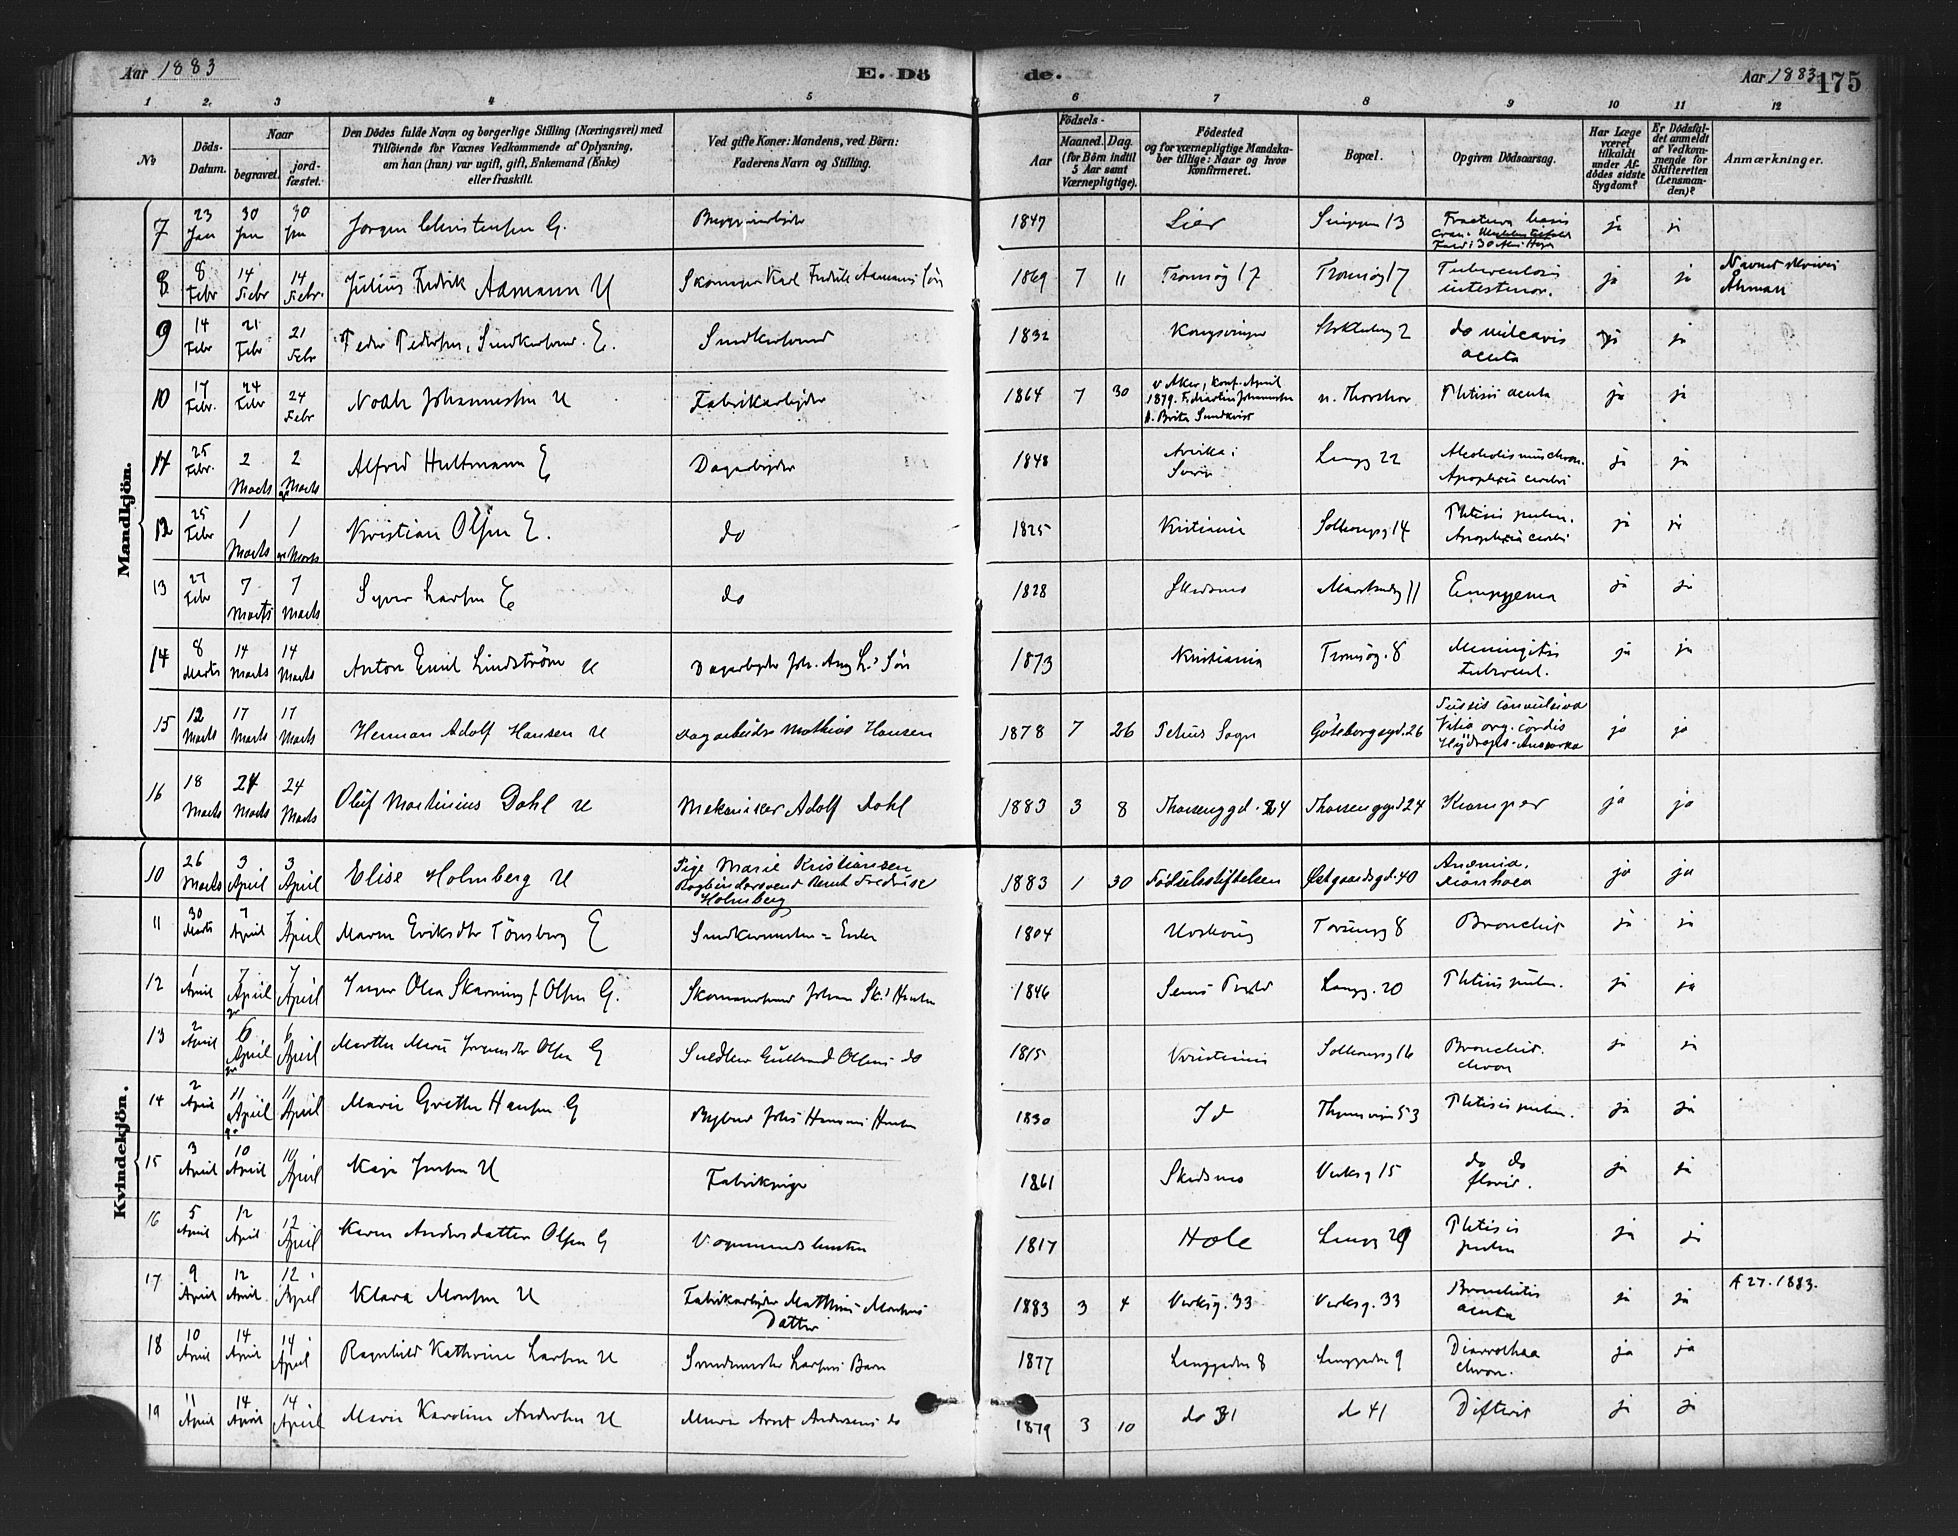 Aar 1883
E. Dö
de.
Aar 1883
175
1 2. 3 4 5 6 7 8 9 10 11 12
No
Döds-
Datum.
Naar
begravet.
jord-
fæstet.
Den Dödes fulde Navn og borgerlige Stilling (Næringsvei) med
Tilföiende for Voxnes Vedkommende af Oplysning,
om han (hun) var ugift, gift, Enkemand (Enke)
eller fraskilt.
Ved gifte Koner: Mandens, ved Börn:
Faderens Navn og Stilling.
Födsels-
Aar
Maaned. Dag.
(for Börn indtil
5 Aar samt
Værnepligtige).
Födested
og for værnepligtige Mandska-
ber tillige: Naar og hvor
konfirmeret.
Bopæl.
Opgiven Dödsaarsag.
Har Læge
været
tilkaldt
under Af-
dödes sidste
Sygdom?
Er Dödsfal-
det anmeldt
af Vedkom-
mende for
Skifteretten
(Lensman-
den)?
Anmærkninger.
Mandkjön.
7 23 Jan 30 Jan 30 Jan Jorgen Christensen G. 1847 Lier 13 ja ja
8 8 Febr 14 Febr 14 Febr. Julius Fredrik Aamann U Karl Fredrik Aamans Sön 1869 7 11 Tromsög 17 Tromsög 17 Tuberculosis
intestinor. ja ja Navnet skrives
Ahman
9 14 Febr 21 Febr 21 Febr Peder Pedersen, E. 1832 Kongsvinger 2 do miliaris
acuta ja ja
10 17 Febr. 24 Febr 24 Febr Noah Johannesen U Fabrikarbeider 1864 7 30 v Aker, konf. April
1879. F. Johannesen
Brita Sundkvist n. Thorshov Phtisis acuta ja ja
11 25 Febr. 2 Marts 2 Marts Alfred Hultmann E Dagarbeider 1848 Arvika i Langg 22 Alcoholismus chron.
Apoplexia cerebri ja ja
12 25 Febr 1 Marts 1 Marts Kristian Olsen E. do 1825 Kristiania 14 Phtisis pulm.
Apoplexia cerebri ja ja
13 27 Febr 7 Marts 7 Marts Syver Larsen E do 1828 Skedsmo 11 Empyema ja ja
14 8 Marts 14 Marts 14 Marts Anton Emil Lindström U Dagarbeider Joh. Aug L.s Sön 1873 Kristiania Tromsög. 8 Meningitis
tubercul. ja ja
15 12 Marts 17 Marts 17 Marts Herman Adolf Hansen U Dagarbeider Mathias Hansen 1878 7 26 Petrus Sogn Göteborggd. 26 Tussis convulsiva
Vitia org. cordis
Hydrops-Anasarka ja ja
16 18 Marts 24 Marts 24 Marts Oluf Martinius Dahl U Mekaniker Adolf Dahl 1883 3 8 24 24 Kramper ja ja
Kvindekjön.
10 26 Marts 3 April 3 April Elise Holmberg U Pige Marie Kristiansen
Bogbindersvend Bernt Fredrik
Holmberg 1883 1 30 Fødselsstiftelsen Østgaardsgd. 40 Anæmia.
Diarrhoea ja ja
11 30 Marts 7 April 7 April Maren Eriksdtr Tönsberg E Enke 1804 8 Bronchit ja ja
12 1 April 7 April 7 April Inger Olea Skarning f. Olsen G. Johan Sk.s Hustru 1846 Langg. 20 Phtisis pulm. ja ja
13 2 April 6 April 6 April Marthe Marie Olsen G Gulbrand Olsens do 1815 Kristiania 16 Bronchit.
chron ja ja
14 2 April 11 April 11 April Marie Grethe Hansen G Johs Hansens Hustru 1830 Id 53 Phtisis pulm. ja ja
15 3 April 10 April 10 April Kaja Jensen U Fabrikpige 1861 Skedsmo Verksg 15 do do
florid. ja ja
16 5 April 12 April 12 April Karen Andersdatter Olsen G Vognmandshustru 1817 Hole Langg 29 Phtisis
pulm ja ja
17 9 April 12 April 12 April Klara Monsen U Fabrikarbeider Matthias Monsens
Datter 1883 3 4 Verksg. 33 Verksg. 33 Bronchitis
acuta ja ja F 27. 1883.
18 10 April 14 April 14 April Ragnhild Kathrine Larsen U Larsens Barn 1877 Langgaden 8 Langgaden 9 Diarrohea
chron. ja ja
19 11 April 14 April 14 April Marie Karoline Andersen U Murer Andersens do 1879 3 10 do 31 do 41 Difterit ja ja